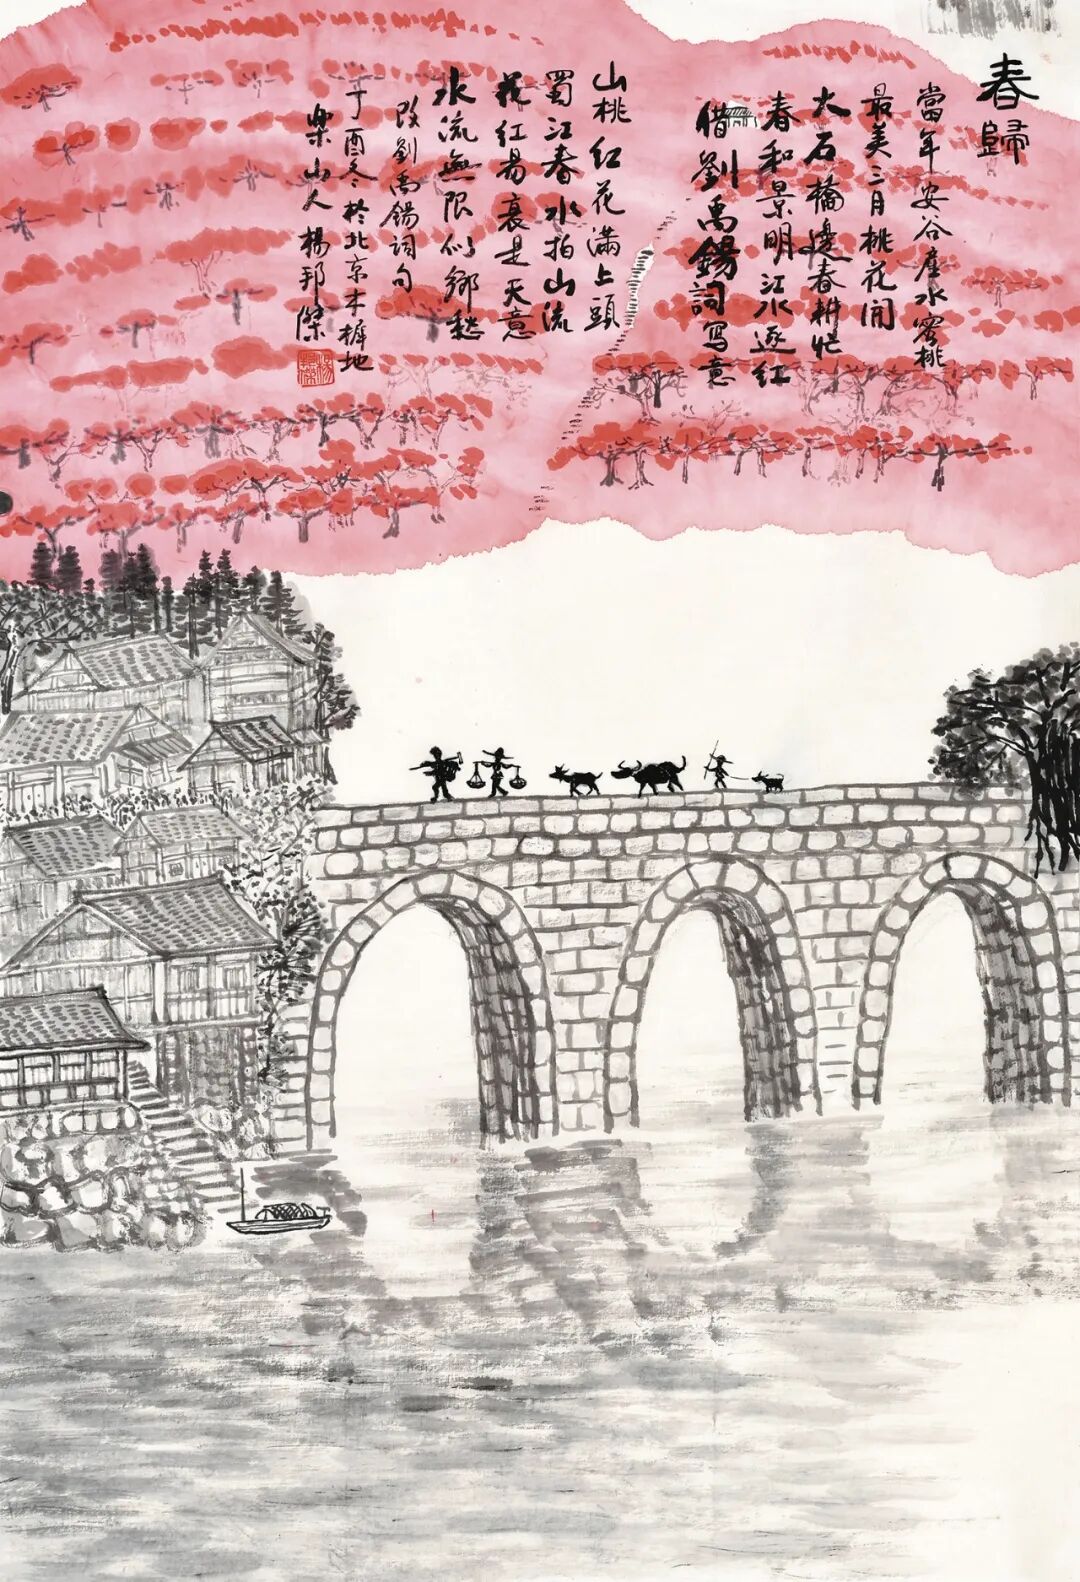 春歸
當年安谷產水蜜桃
最美三月桃花開
大石橋邊春耕忙
春和景明江水逐紅
借劉禹錫詞寫意
山桃紅花滿上頭
蜀江春水拍山流
花紅易衰是天意
水流無限似鄉愁
改劉禹錫詞句
丁酉冬於北京木樨地
樂山人楊邦傑